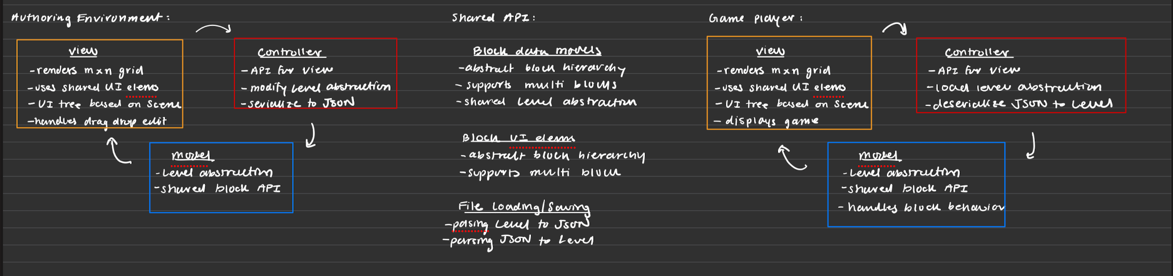 Authoring Environment:
View
-renders mxn grid
-uses shared UI elems
-UI tree based on Scene
-handles drag drop edit
Controller
-API for view
-modify level abstraction
-serialize to JSON
Model
-Level abstraction
-shared block API
Shared API:
Block data models
-abstract block hierarchy
-supports multi blocks
-shared level abstraction
Block UI elems
-abstract block hierarchy
-supports multi block
File Loading/Saving
-parsing Level to JSON
-parsing JSON to Level
Game player:
View
-renders mxn grid
-uses shared UI elems
-UI tree based on Scene
- displays game
Controller
-API for view
-load level abstraction
-deserialize JSON to Level
Model
-Level abstraction
-shared block API
-handles block behavior